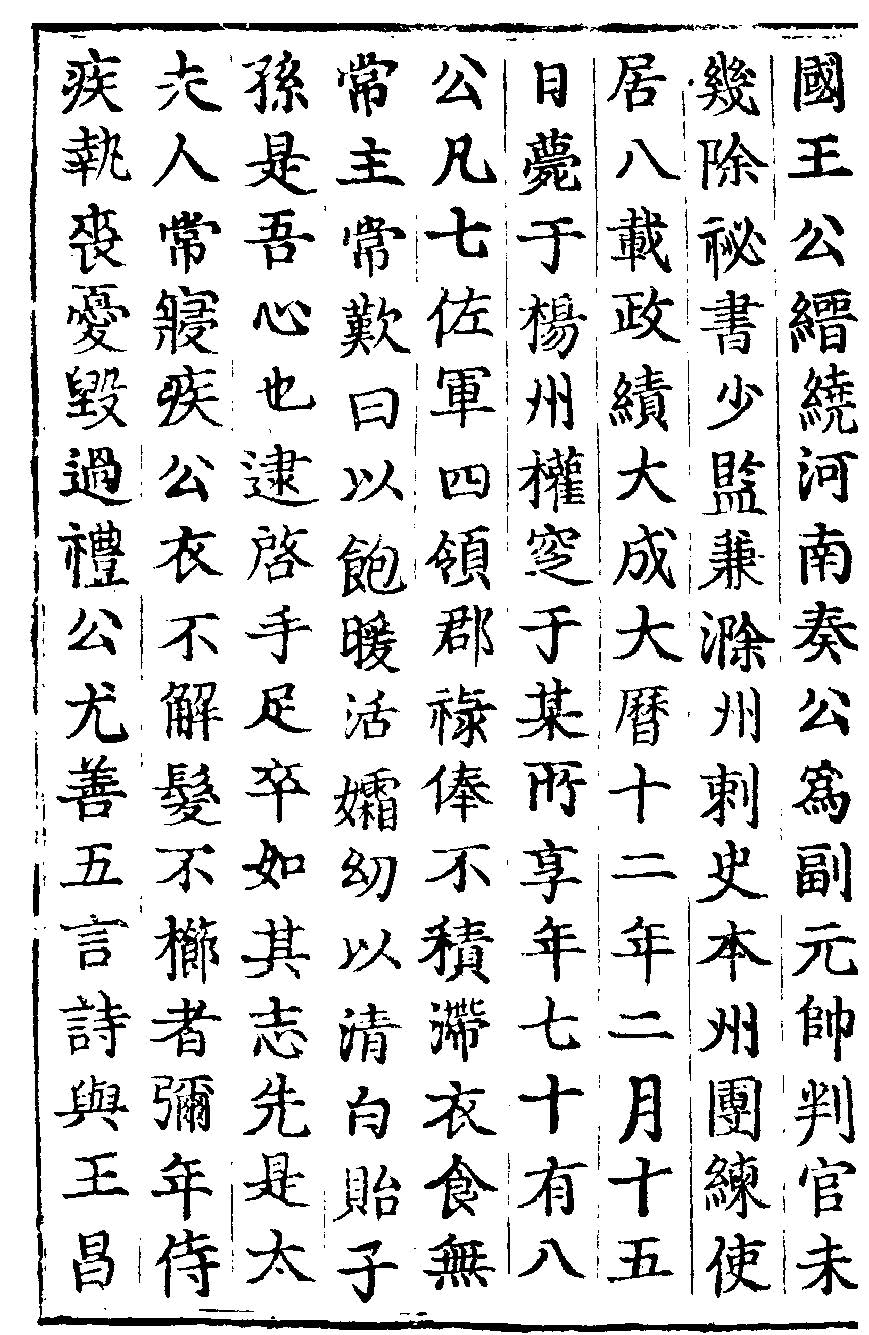 國王公縉繞河南奏公爲副元帥判官未
幾除祕書少監兼滁州刺史本州團練使
居八載政績大成大曆十二年二月十五
日薨于楊州權窆于某所享年七十有八
公凡七佐軍四領郡祿俸不積滯衣食無
常主常歎曰以飽暖活孀幼以清白貽子
孫是吾心也逮啓手足卒如其志先是太
夫人常寢疾公衣不解髮不櫛者彌年侍
疾執喪憂毀過禮公尤善五言詩與王昌